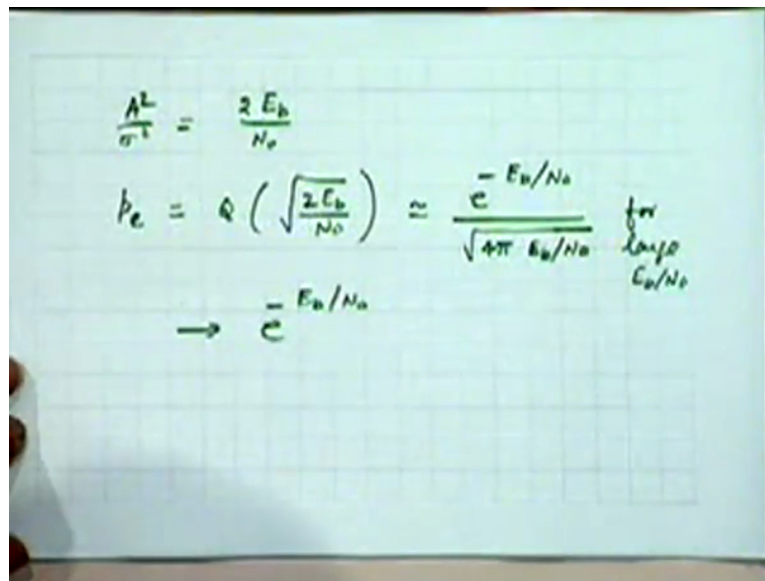 A²/σ² = 2 E_b/N_0
p_e = Q ( √(2 E_b/N_0) ) ≃ e^(- E_b/N_0) / √(4π E_b/N_0) for large E_b/N_0
→ e^(- E_b/N_0)